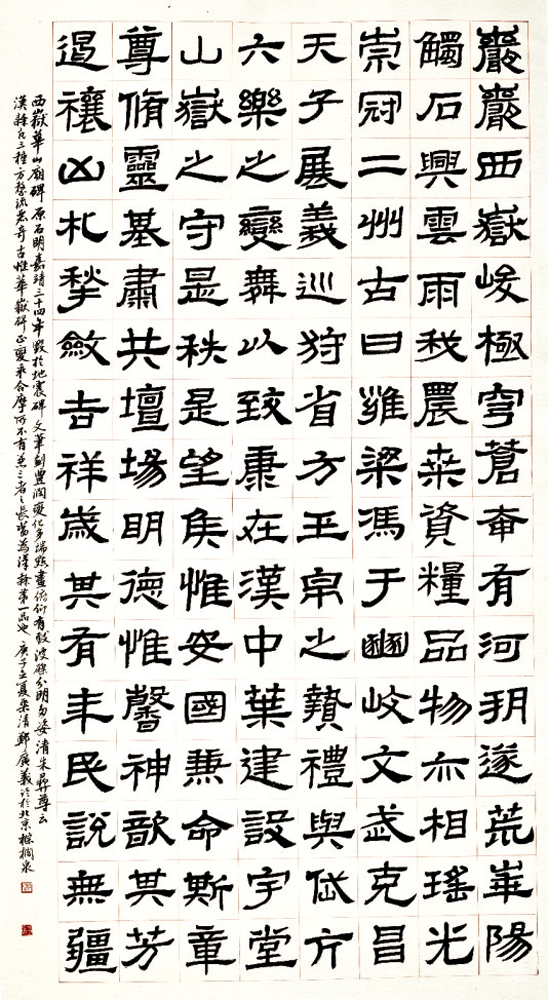 巖巖西嶽峻極穹蒼奄有河朔遂荒華陽
觸石興雲雨我農桒資糧品物亦相瑤光
崇冠二州古曰雍梁馮于豳岐文武克昌
天子展義巡狩省方玉帛之贄禮與岱亢
六樂之變舞以致康在漢中葉建設宇堂
山嶽之守是秩是望侯惟安國兼命斯章
尊脩靈基肅共壇場明德惟馨神歆其芳
遏禳凶札揫斂吉祥歲其有年民說無疆
西嶽華山廟碑原石明嘉靖三十四年毀於地震碑文筆劃豐潤變化多端點畫俯仰有致波磔分明多姿清朱彝尊云
漢隸凡三種方整流麗奇古惟華嶽碑正變乖合靡所不有兼三者之長當為漢隸第一品也庚子立夏樂清鄭廣義於北京梧桐泉